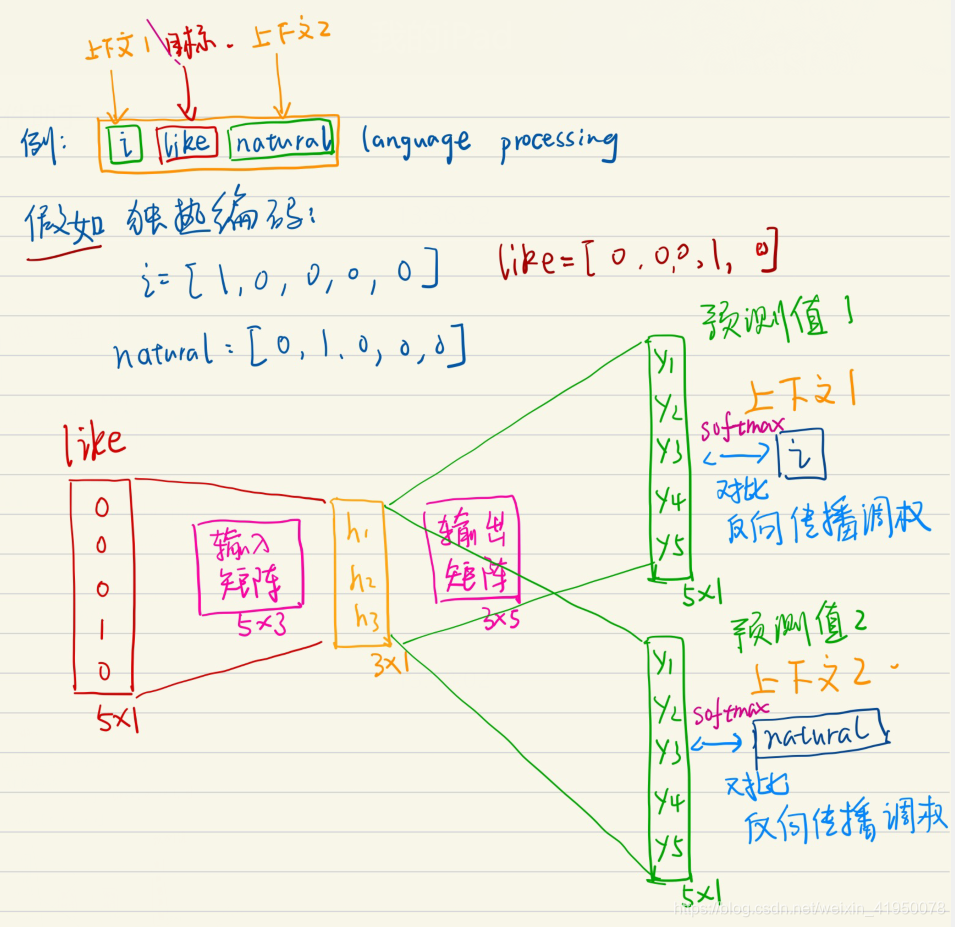 上下文1 目标. 上下文2
例: i like natural language processing
假如 独热编码:
i=[1,0,0,0,0]
like=[0.0,0,1,0]
natural=[0,1.0,0,0]
预测值1
like
0
0
0
1
0
5×1
输入
矩阵
5×3
h1
h2
h3
3×1
输出
矩阵
3×5
y1
y2
y3
y4
y5
5×1
上下文1
softmax
i
对比
反向传播调权
预测值2
y1
y2
y3
y4
y5
5×1
上下文2.
softmax
natural
对比
反向传播调权
https://blog.csdn.net/weixin_41950078